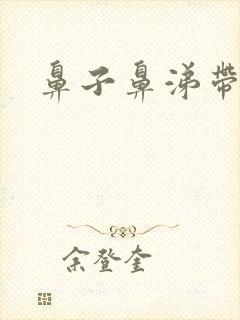 鼻子鼻涕帶
余登奎